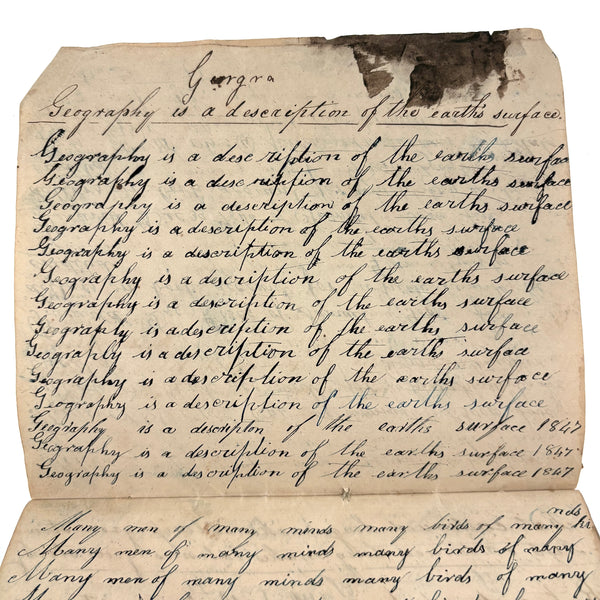 Gurgra
Geography is a description of the earth's surface.
Geography is a description of the earths surfac
Geography is a description of the earths surface
Geography is a description of the earths surface
Geography is a description of the earths surface
Geography is a description of the earths surface
Geography is a description of the earths surface
Geography is a description of the earths surface
Geography is a description of the earths surface
Geography is a description of the earths surface
Geography is a description of the earths surface
Geography is a description of the earths surface
Geography is a description of the earths surface 1847
Geography is a description of the earths surface 1847
Geography is a description of the earths surface 1847
nds
Many men of many minds many birds of many ki
Many men of many minds many birds of many
Many men of many minds many birds of many